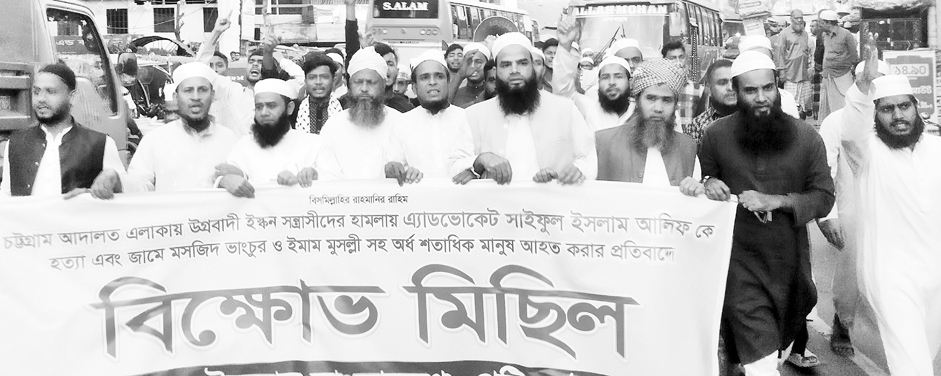 S.ALAM
বিসমিল্লাহির রাহমানির রাহিম
চট্টগ্রাম আদালত এলাকায় উগ্রবাদী ইস্কন সন্ত্রাসীদের হামলায় এ্যাডভোকেট সাইফুল ইসলাম আলিফ কে
হত্যা এবং জামে মসজিদ ভাংচুর ও ইমাম মুসল্লী সহ অর্ধ শতাধিক মানুষ আহত করার প্রতিবাদে
বিক্ষোভ মিছিল